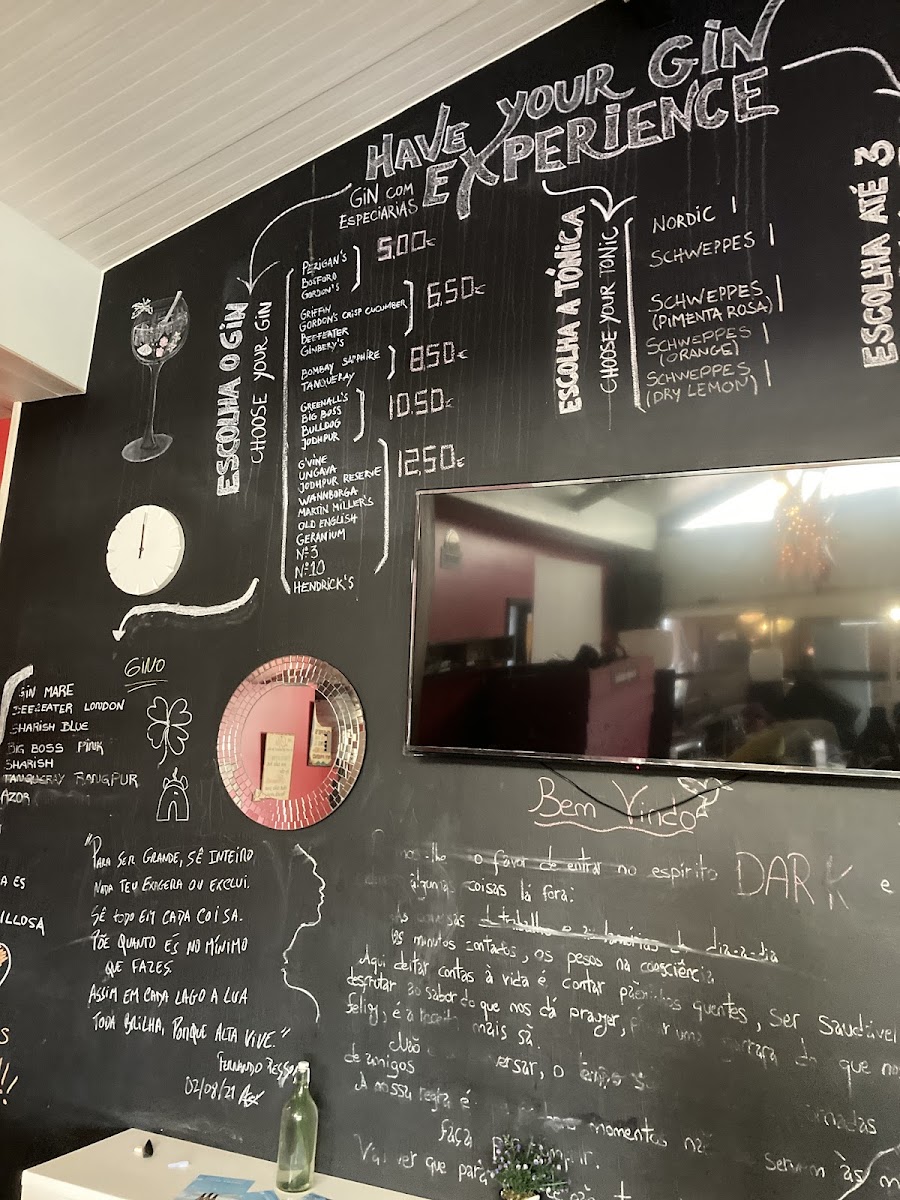 HAVE YOUR GIN
EXPERIENCE
GIN COM
ESPECIARIAS
ESCOLHA O GIN
CHOOSE YOUR GIN
PERIGAN'S
BOSFORO
GORDON'S
5.00€
GRIFFIN
GORDON'S CRISP CUCUMBER
BEEFEATER
GINBERY'S
6.50€
BOMBAY SAPPHIRE
TANQUERAY
8.50€
GREENALL'S
BIG BOSS
BULLDOG
JODHPUR
10.50€
G'VINE
UNGAVA
JODHPUR RESERVE
WANNBORGA
MARTIN MILLER'S
OLD ENGLISH
GERANIUM
Nº3
Nº10
HENDRICK'S
12,50€
ESCOLHA A TÓNICA
CHOOSE YOUR TONIC
NORDIC
SCHWEPPES
SCHWEPPES
(PIMENTA ROSA)
SCHWEPPES
(ORANGE)
SCHWEPPES
(DRY LEMON)
ESCOLHA ATÉ 3
GINO
GIN MARE
BEEFEATER LONDON
SHARISH BLUE
BIG BOSS PINK
SHARISH
TANQUERAY RANGPUR
AZOR
A ES
ILLOSA
"PARA SER GRANDE, SÊ INTEIRO
NADA TEU EXAGERA OU EXCLUI.
SÊ TODO EM CADA COISA.
PÕE QUANTO ÉS NO MÍNIMO
QUE FAZES
ASSIM EM CADA LAGO A LUA
TODA BRILHA, PORQUE ALTA VIVE."
FERNANDO PESSOA
02/08/21
Bem Vindo
o favor de entrar no espírito DARK e
coisas lá fora:
de trabalho do dia-a-dia
os minutos contados, os pesos na consciência
Aqui deitar contas à vida é contar pãezinhos quentes, ser saudável
desfrutar ao sabor do que nos dá prazer, uma do que nos
feliz, é a mais sã.
Não
de amigos versar, o tempo
A nossa regra é
faça momentos
Vai ver que para